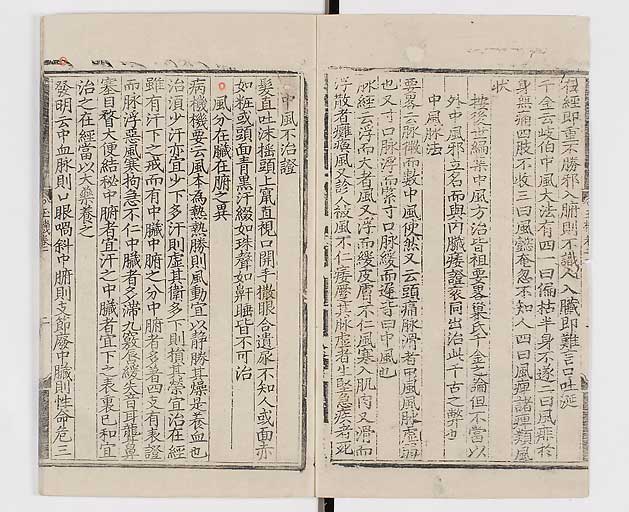 在經即重不勝邪入腑則不識人入臟即難言口吐涎
千金云岐伯中風大法有四一曰偏枯半身不遂二曰風痱於
身無痛四肢不收三曰風懿奄忽不知人四曰風痺諸痺類風
狀
按後世編集中風方治皆祖要畧巢氏千金之論但不當以
外中風邪立名而與內臟痿證衮同出治此千古之弊也
中風脉法
要畧云脉微而數中風使然又云頭痛脉滑者中風風脉虛弱
也又寸口脉浮而緊寸口脉緩而遲寸曰中風也
脉經云浮而大者風又浮而緩皮膚不仁風寒入肌肉又滑而
浮散者癱瘓風又診人被風不仁痿蹷其脉虛者生堅急疾者死
中風不治證
髮直吐沫揺頭上竄直視口開手撒眼合遺尿不知人或面赤
如粧或頭面青黑汗綴如珠聲如鼾睡皆不可治
風分在臟在腑之異
病機機要云風本爲熱熱勝則風動宜以靜勝其燥是養血也
治湏少汗亦宜少下多汗則虛其衛多下則損其榮宜治在經
雖有汗下之戒而有中臟中腑之分中腑者多著四支有表證
而脉浮惡風寒拘急不仁中臟者多滯九竅唇緩失音耳聾鼻
塞目瞀大便結秘中腑者宜汗之中臟者宜下之表裏已和宜
治之在經當以大藥養之
發明云中血脉則口眼喎斜中腑則支節廢中臟則性命危三